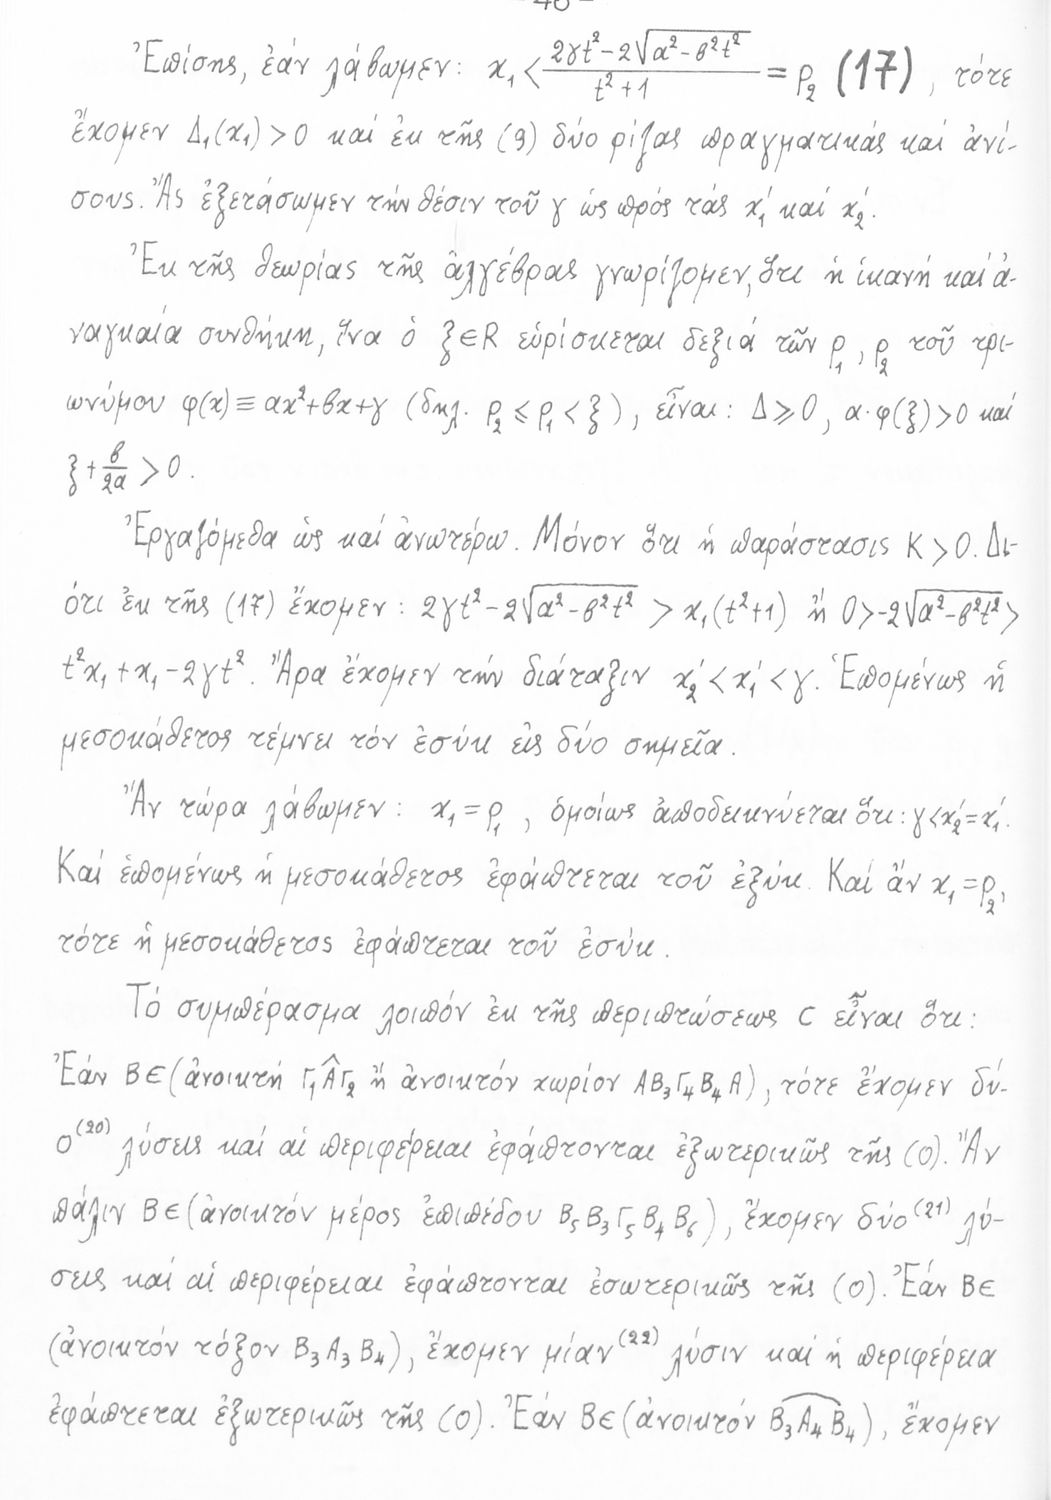 Ἐπίσης, ἐάν λάβωμεν: x₁ < (2γt²-2√(α²-β²t²))/(t²+1) = ρ₂ (17), τότε
ἔχομεν Δ₁(x₁)>0 καί ἐκ τῆς (9) δύο ρίζας πραγματικάς καί ἀνί-
σους. Ἄς ἐξετάσωμεν τήν θέσιν τοῦ γ ὡς πρός τάς x₁' καί x₂'.
Ἐκ τῆς θεωρίας τῆς ἀλγέβρας γνωρίζομεν, ὅτι ἡ ἱκανή καί ἀ-
ναγκαία συνθήκη, ἵνα ὁ ξ∈R εὑρίσκεται δεξιά τῶν ρ₁, ρ₂ τοῦ τρι-
ωνύμου φ(x)≡αx²+βx+γ (δηλ. ρ₂≤ρ₁<ξ), εἶναι: Δ≥0, α·φ(ξ)>0 καί
ξ+β/2α >0.
Ἐργαζόμεθα ὡς καί ἀνωτέρω. Μόνον ὅτι ἡ παράστασις Κ>0. Δι-
ότι ἐκ τῆς (17) ἔχομεν: 2γt²-2√(α²-β²t²) > x₁(t²+1) ἤ 0>-2√(α²-β²t²)>
t²x₁+x₁-2γt². Ἄρα ἔχομεν τήν διάταξιν x₂'<x₁'<γ. Ἑπομένως ἡ
μεσοκάθετος τέμνει τόν ἐσύκ εἰς δύο σημεῖα.
Ἄν τώρα λάβωμεν: x₁=ρ₁, ὁμοίως ἀποδεικνύεται ὅτι: γ<x₂'=x₁'.
Καί ἑπομένως ἡ μεσοκάθετος ἐφάπτεται τοῦ ἐξύκ. Καί ἄν x₁=ρ₂,
τότε ἡ μεσοκάθετος ἐφάπτεται τοῦ ἐσύκ.
Τό συμπέρασμα λοιπόν ἐκ τῆς περιπτώσεως C εἶναι ὅτι:
Ἐάν Β∈(ἀνοικτή Γ₁Α̂Γ₂ ἤ ἀνοικτόν χωρίον ΑΒ₃Γ₄Β₄Α), τότε ἔχομεν δύ-
ο⁽²⁰⁾ λύσεις καί αἱ περιφέρειαι ἐφάπτονται ἐξωτερικῶς τῆς (Ο). Ἄν
πάλιν Β∈(ἀνοικτόν μέρος ἐπιπέδου Β₅Β₃Γ₅Β₄Β₆), ἔχομεν δύο⁽²¹⁾ λύ-
σεις καί αἱ περιφέρειαι ἐφάπτονται ἐσωτερικῶς τῆς (Ο). Ἐάν Β∈
(ἀνοικτόν τόξον Β₃Α₃Β₄), ἔχομεν μίαν⁽²²⁾ λύσιν καί ἡ περιφέρεια
ἐφάπτεται ἐξωτερικῶς τῆς (Ο). Ἐάν Β∈(ἀνοικτόν Β₃Α₄Β₄), ἔχομεν